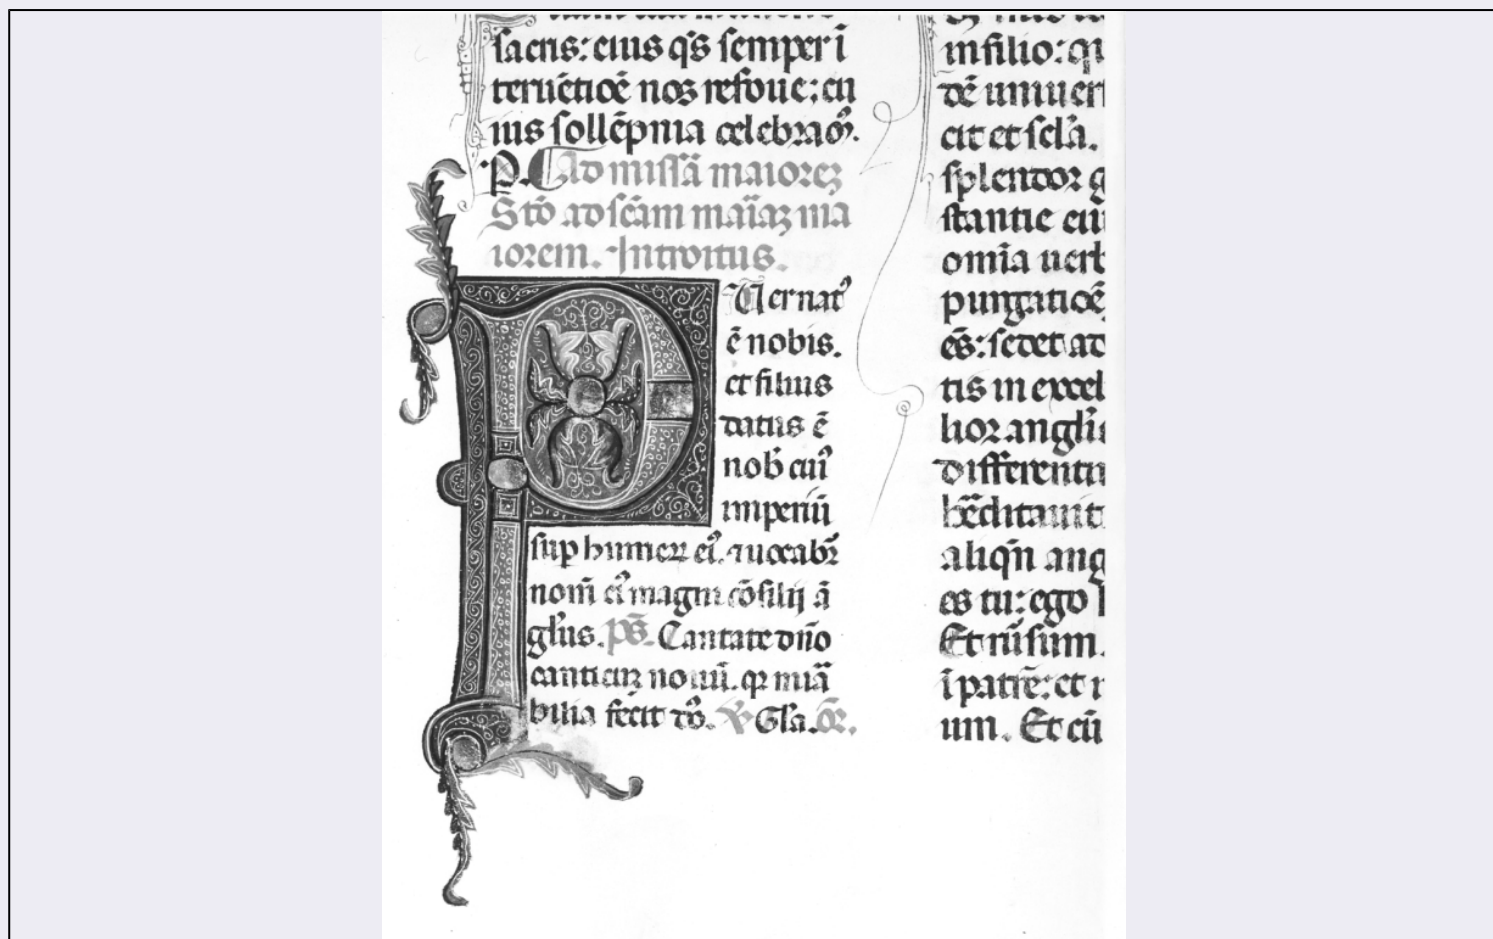 sacris: eius q̄s semper ī
teruētiōē nos refoue: cu
ius sollēpnia celebramꝰ.
P. Ad missā maiorēꝫ
Stō ad scām mariaꝫ ma
iorem. Introitus.
PUer natꝰ
ē nobis.
et filius
datus ē
nob̄ cuiꝰ
imperiū
sup humeꝝ eiꝰ. ⁊ uocabr̄
nom̄ eiꝰ magni cōsilij ā
gľus. ps̄. Cantate dn̄o
canticuꝫ nouū. qꝛ mirā
bilia fecit dō. ꝟ Gľa. or̄.
in filio: qu
dē uniuer
cit et scľa.
splendor g
stantie eiu
om̄ia uerb
purgatiōē
es: sedet ad
tis in excel
lior angľis
differenti
hēditauit
aliqn̄ ang
es tu: ego
Et rūsum.
ī patrē: et
um. Et cū